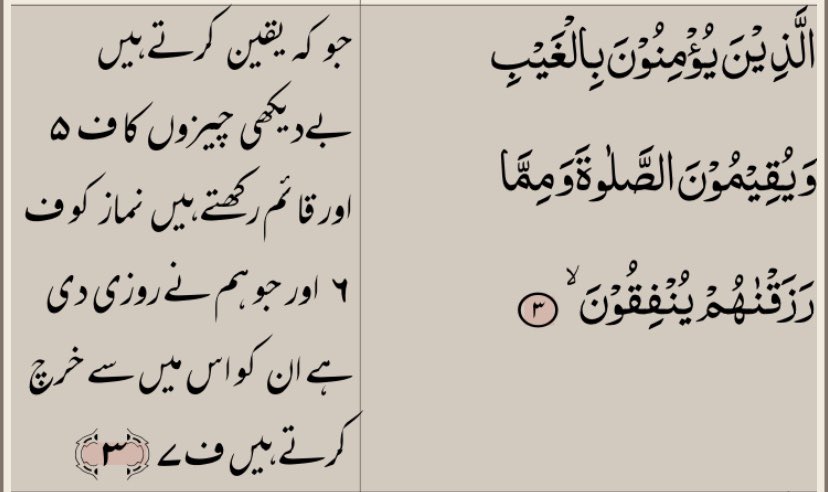 الَّذِيْنَ يُؤْمِنُوْنَ بِالْغَيْبِ
وَيُقِيْمُوْنَ الصَّلٰوةَ وَمِمَّا
رَزَقْنٰهُمْ يُنْفِقُوْنَ ۙ ﴿۳﴾
جو کہ یقین کرتے ہیں
بے دیکھی چیزوں کا ف ۵
اور قائم رکھتے ہیں نماز کو ف
۶ اور جو ہم نے روزی دی
ہے ان کو اس میں سے خرچ
کرتے ہیں ف ۷ ﴿۳﴾